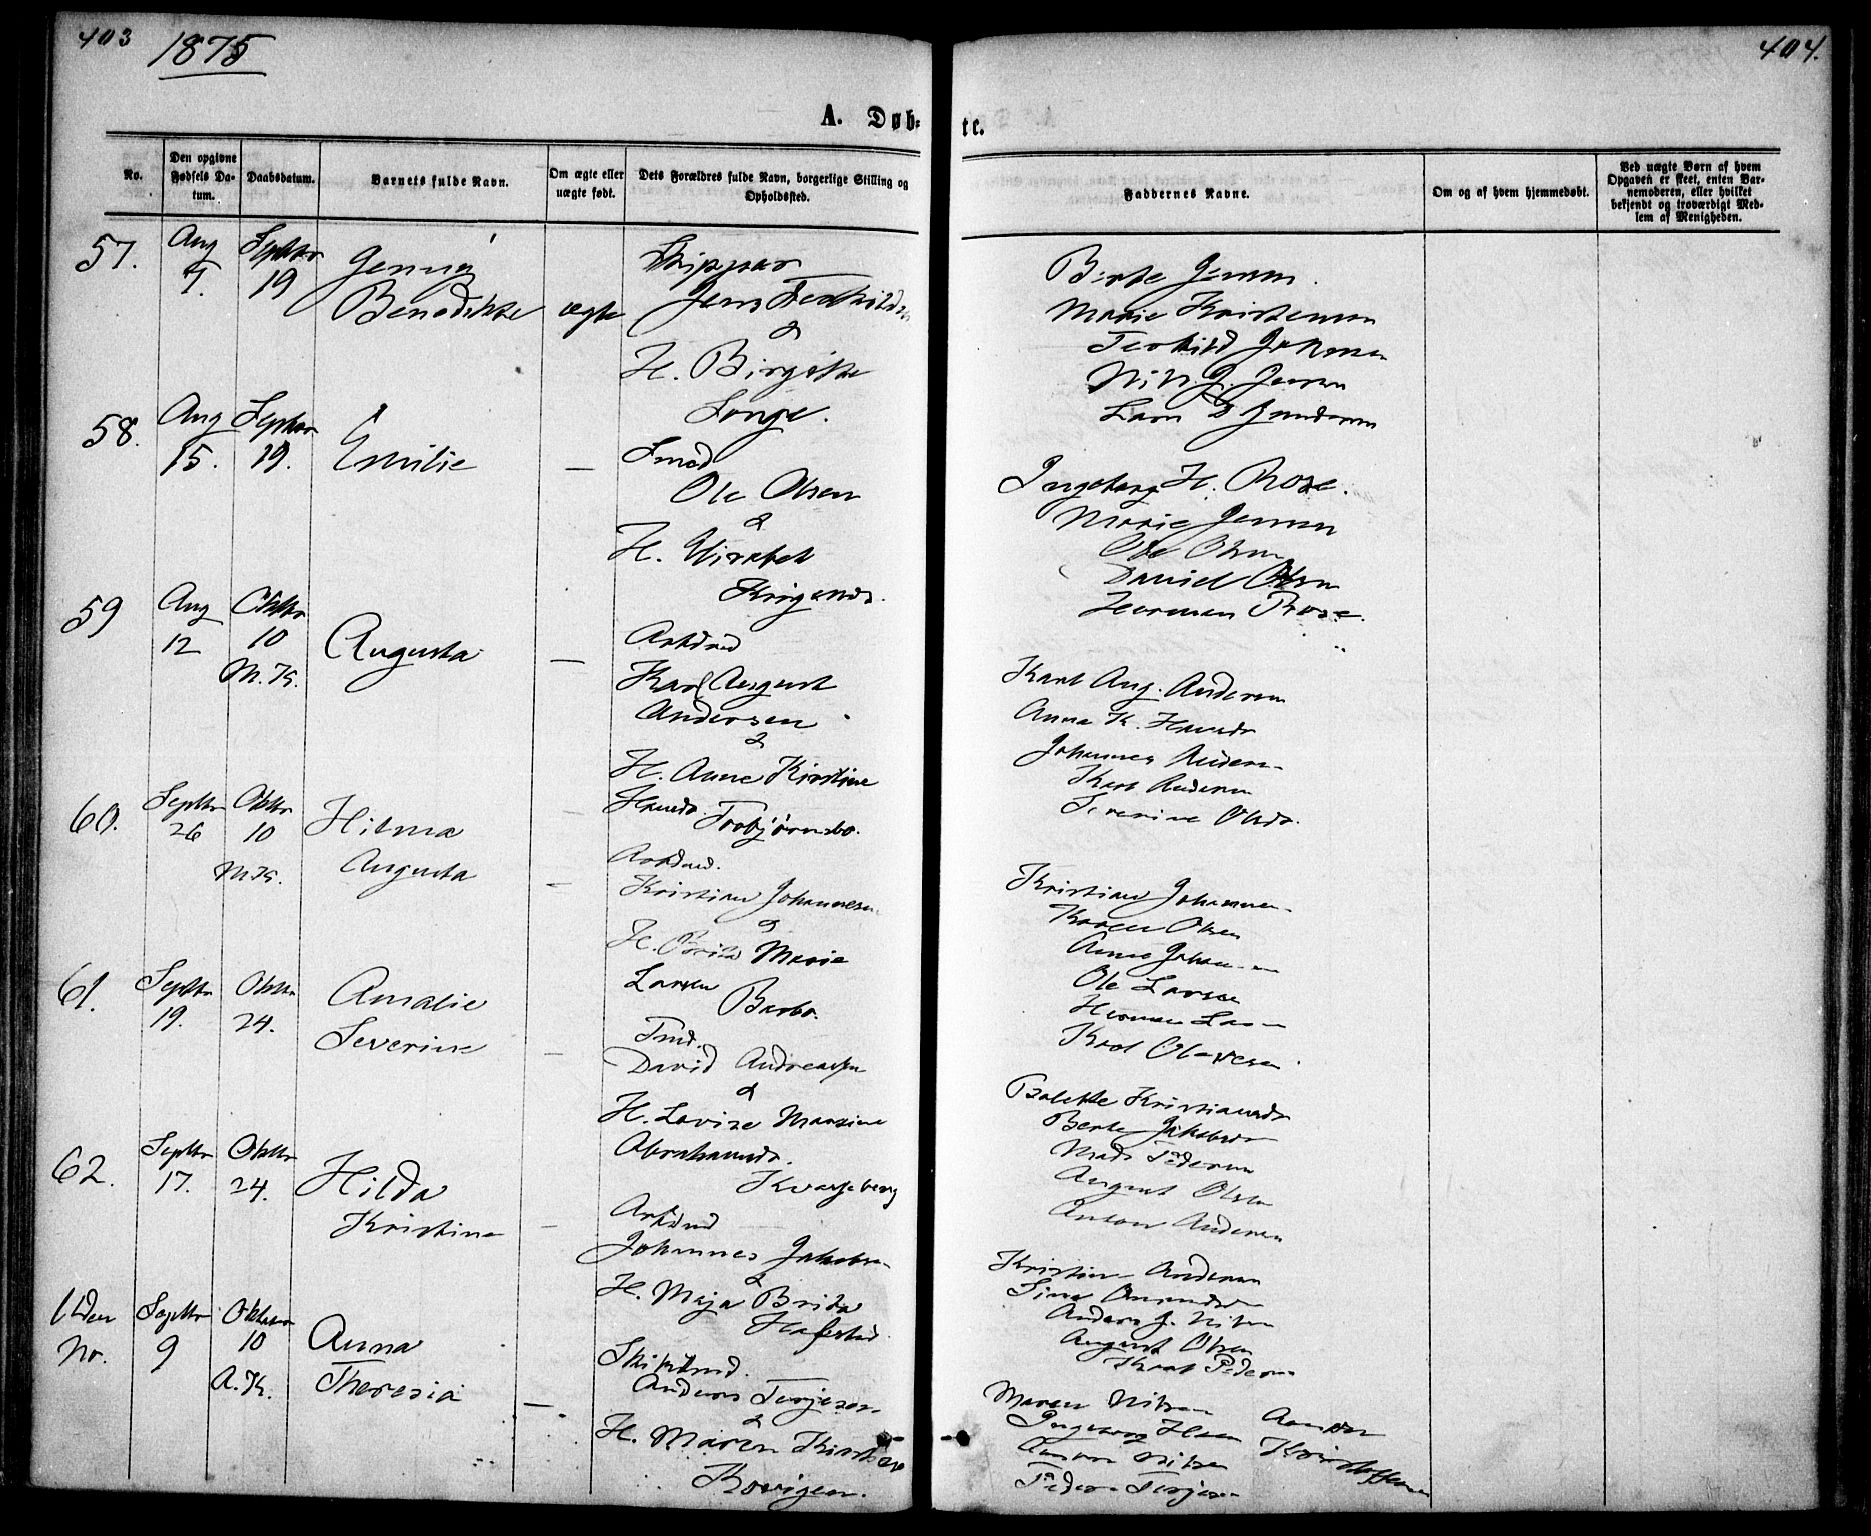 403
1875
404.
A. Døb-
te.
No.
Den opgivne Fødsels Da-tum.
Daabsdatum.
Barnets fulde Navn.
Om ægte eller uægte født.
Dets Forældres fulde Navn, borgerlige Stilling og Opholdssted.
Faddernes Navne.
Om og af hvem hjemmedøbt.
Ved uægte Børn af hvem Opgaven er skeet, enten Bar-nemoderen, eller hvilket bekjendt og troværdigt Med-lem af Menigheden.
57.
Aug
7.
Septbr
19
Jenny
Benedikte
ægte
Skipper
Jens Terkildsen
&
H. Birgitte
Longe.
Berte Jensen.
Marie Kristensen
Terkild Jakobsen
Nils J. Jensen
Lars Gundersen
58.
Aug
15.
Septbr
19.
Emilie
—
Smed
Ole Olsen
&
H. Elisabet
Ingeborg H. Rose.
Marie Jensen
Ole Olsen
Daniel Olsen
Herman Rose.
59
Aug
12
Oktbr
10
M.K.
Augusta
—
Arbdmd
Karl August
Andersen
&
H. Anne Kirstine
Hansdr. Torbjørnsbo.
Karl Aug. Andersen
Anna K. Hansdr
Johannes Andersen
Karl Andersen
Severine Olsdr.
60.
Septbr
26
Oktbr
10
M.K.
Hilma
Augusta
—
Arbdmd.
Kristian Johannesen
&
H. Brita Marie
Larsen
Barbo.
Kristian Johannesen
Karen Olsen
Anne Johansen
Ole Larsen
Herman Larsen
Karl Olavesen
61.
Septbr
19.
Oktbr
24.
Amalie
Severine
—
Tmd.
David Andreassen
&
H. Lovise Maxine
Abrahamsdr.
Kvasseberg
Bolette Kristiansdr
Berte Jakobsdr
Mads Pedersen
August Olsen
Anton Andersen
62.
Septbr
17.
Oktbr
24.
Hilda
Kristine
—
Arbdmd
Johannes Jakobsen
&
H. Maja Brita
Hafsted
Kristine Andersen
Anders J. Nilsen
August Olsen
Karl Pedersen
Uden
No.
Septbr
9
Oktober
10
A.K.
Anna
Theresia
—
Anders Terjesen
&
H. Maren Kirstine
Maren Nilsen
Ingeborg
Kristoffersen
Peder Terjesen